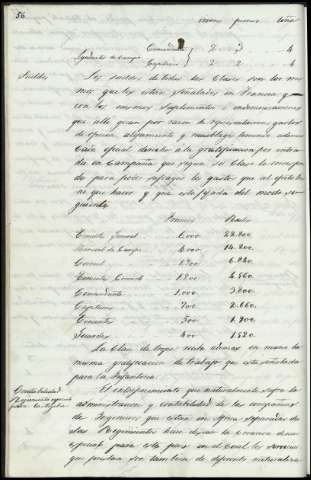 56
Comandantes 2 3 4
Ayudantes de campo
Capitanes 2 2 4
Sueldos
Los sueldos de todas las Clases son los mis
mos que les estan señalados en Francia y
con los mismos suplementos e indemnizaciones
que alli gozan por razon de representacion, gastos
de oficina, alojamiento y mueblage teniendo ademas
Cada oficial derecho a la gratificacion por entra
da en Campaña que segun su Clase le corresponda
para poder sufragar los gastos que al efecto tie
ne que hacer y que esta fijada del modo si
guiente
Francos Reales
Teniente General 6.000 22.800
Mariscal de Campo 4.000
Coronel 1.800 6.840
Teniente Coronel 1.200 4.560
Comandante 1.000 3.800
Capitan 700 2.660
Teniente 500 1.900
400 1.520
La Clase de tropa recibe ademas en mano la
misma gratificacion de trabajo que esta señalada
para la Infanteria
Contabilidad
El entorpecimiento que naturalmente sigue la
administracion y contabilidad de las compañias
de Ingenieros que estan en Africa separadas de
sus Regimientos hace desear la creacion de un
especial para este pais en el cual los servicios
que prestan son tambien de diferente naturaleza